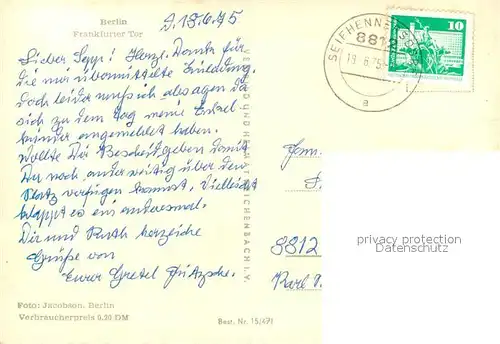 Berlin
Frankfurter Tor
D. 18.6.75
Lieber Sepp! Herzl. Dank für
die mir übermittelte Einladung.
Doch leider muß ich absagen da
sich zu dem Tag meine Enkel-
kinder angemeldet haben.
Wollte Dir Bescheid geben damit
Du noch anderweitig über den
Platz verfügen kannst. Vielleicht
klappt es ein andermal.
Dir und Ruth herzliche
Grüße von
Eurer Gretel
Foto: Jacobson, Berlin
Verbraucherpreis 0,20 DM
Best. Nr. 15/479
REICHENBACH I. V.
SEIFHENNERSDORF
8812
a
10
Fam.
8812
Karl
privacy protection
Datenschutz